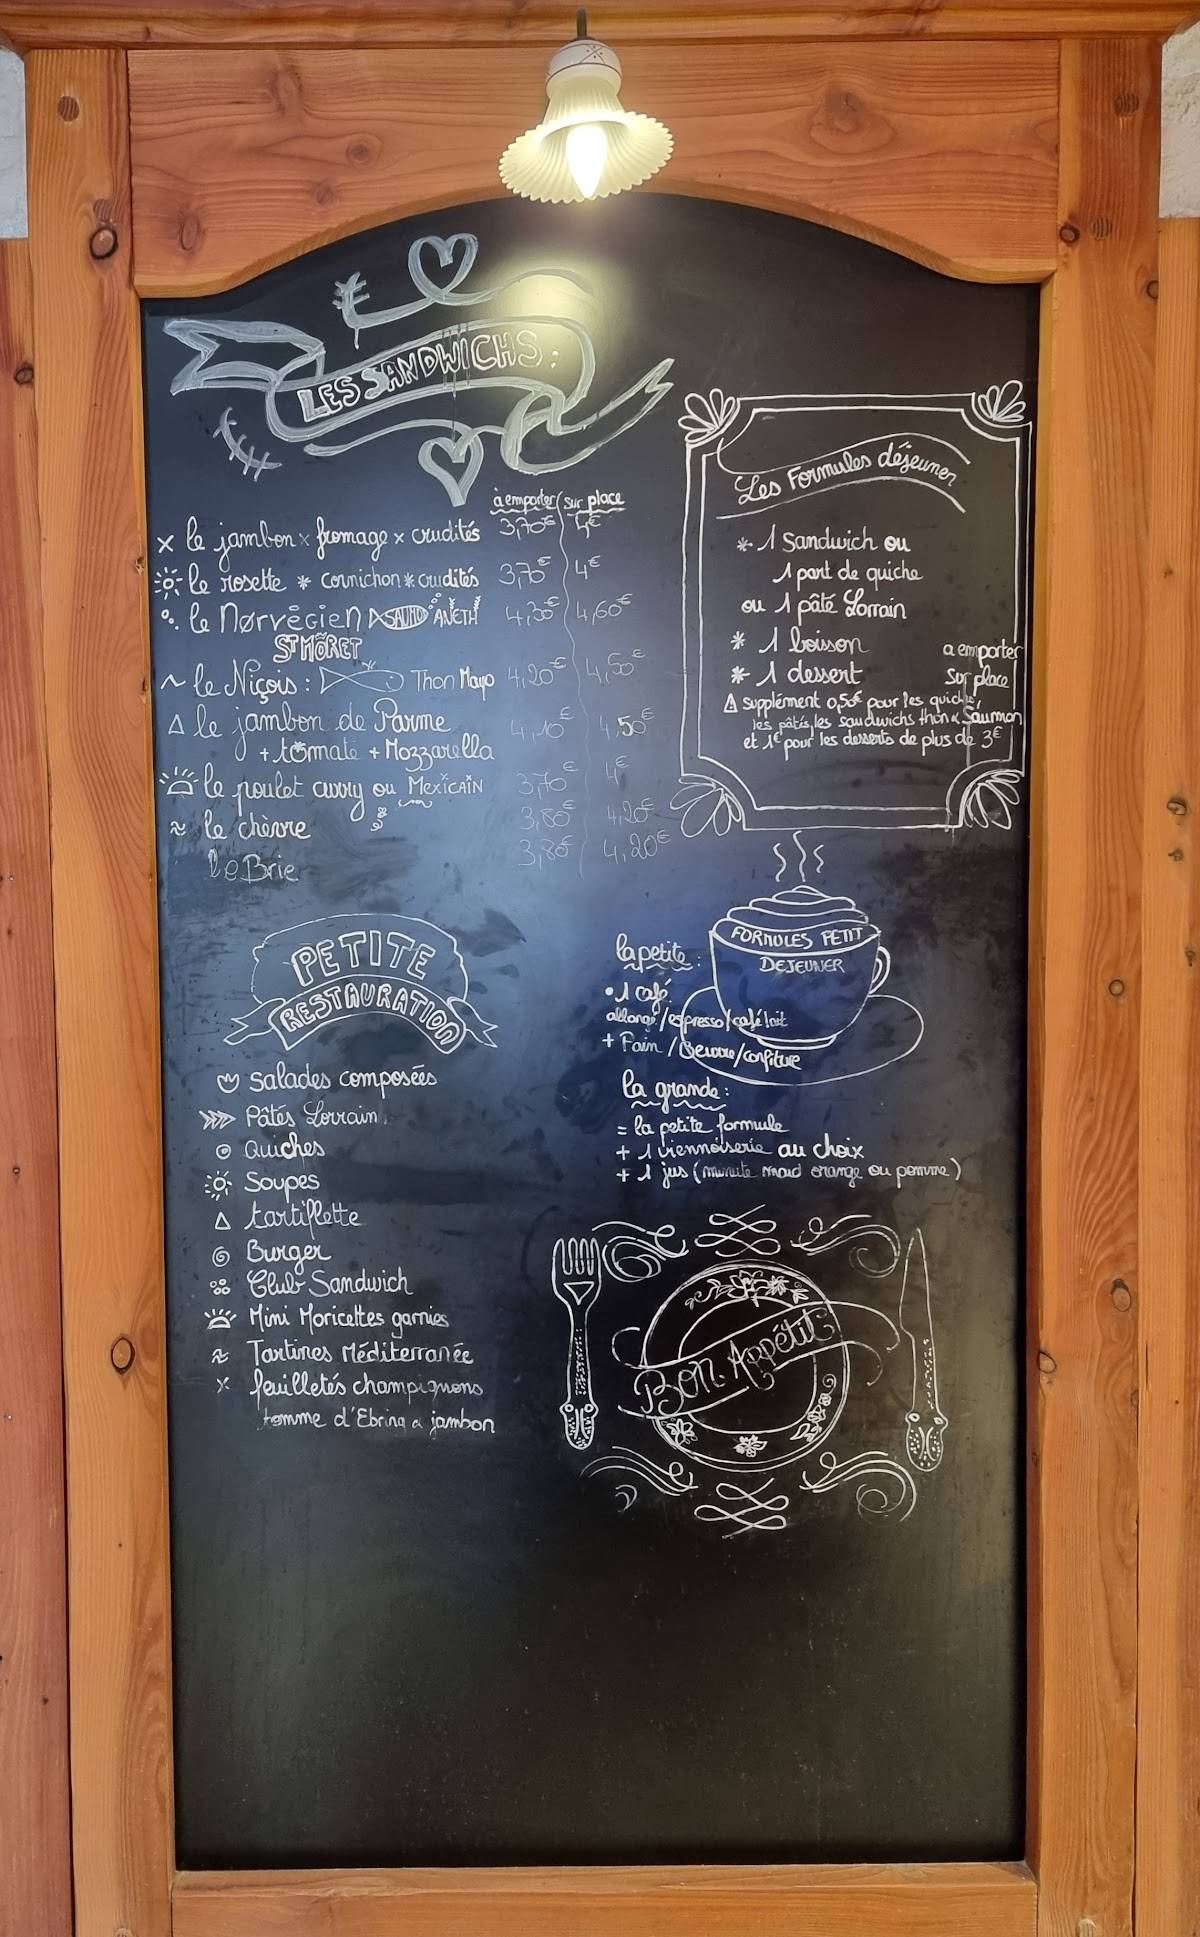 LES SANDWICHS :
à emporter / sur place
le jambon x fromage x crudités 3,70€ 4€
le rosette * cornichon * crudités 3,70€ 4€
le Nørvégien SAUMON ANETH 4,30€ 4,60€
ST MÔRET
le Niçois : Thon Mayo 4,20€ 4,50€
le jambon de Parme 4,10€ 4,50€
+ tomate + Mozzarella
le poulet curry ou MEXICAIN 3,70€ 4€
le chèvre 3,80€ 4,20€
le Brie 3,80€ 4,20€
Les Formules déjeuner
* 1 Sandwich ou
1 part de quiche
ou 1 pâté Lorrain
* 1 boisson
* 1 dessert
a emporter
Sur place
⚠ Supplément 0,50€ pour les quiches,
les pâtés, les sandwichs thon & Saumon
et 1€ pour les desserts de plus de 3€
PETITE
RESTAURATION
Salades composées
Pâtés Lorrain
Quiches
Soupes
tartiflette
Burger
Club Sandwich
Mini Moricettes garnies
Tartines Méditerranée
feuilletés champignons
tomme d'Ebring & jambon
FORMULES PETIT
DEJEUNER
la petite :
• 1 café
allongé / espresso / café lait
+ Pain / Beurre / confiture
la grande :
= la petite formule
+ 1 viennoiserie au choix
+ 1 jus (minute maid orange ou pomme)
Bon Appétit